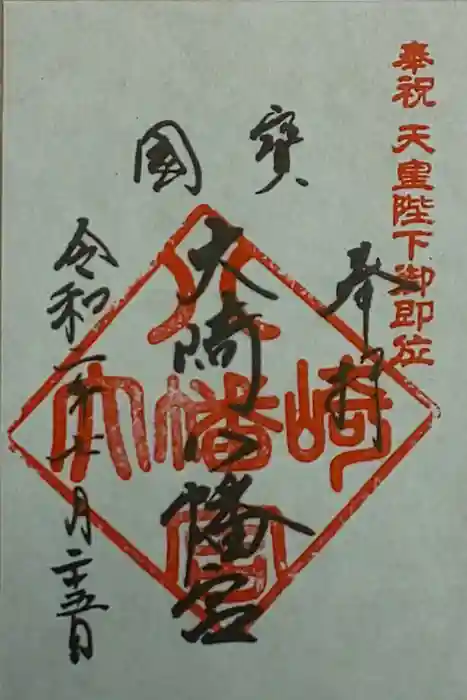 奉祝 天皇陛下御即位
奉拝
國寶
大崎八幡宮
令和二年十月二十五日
八
大幡崎
宮